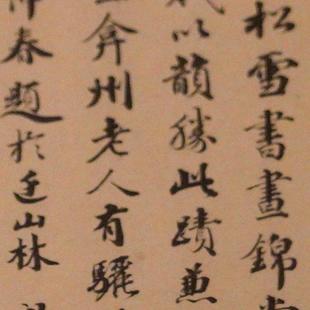 松雪書畫錦堂
以韻勝此蹟兼
弇州老人有驪
春題於迂山林